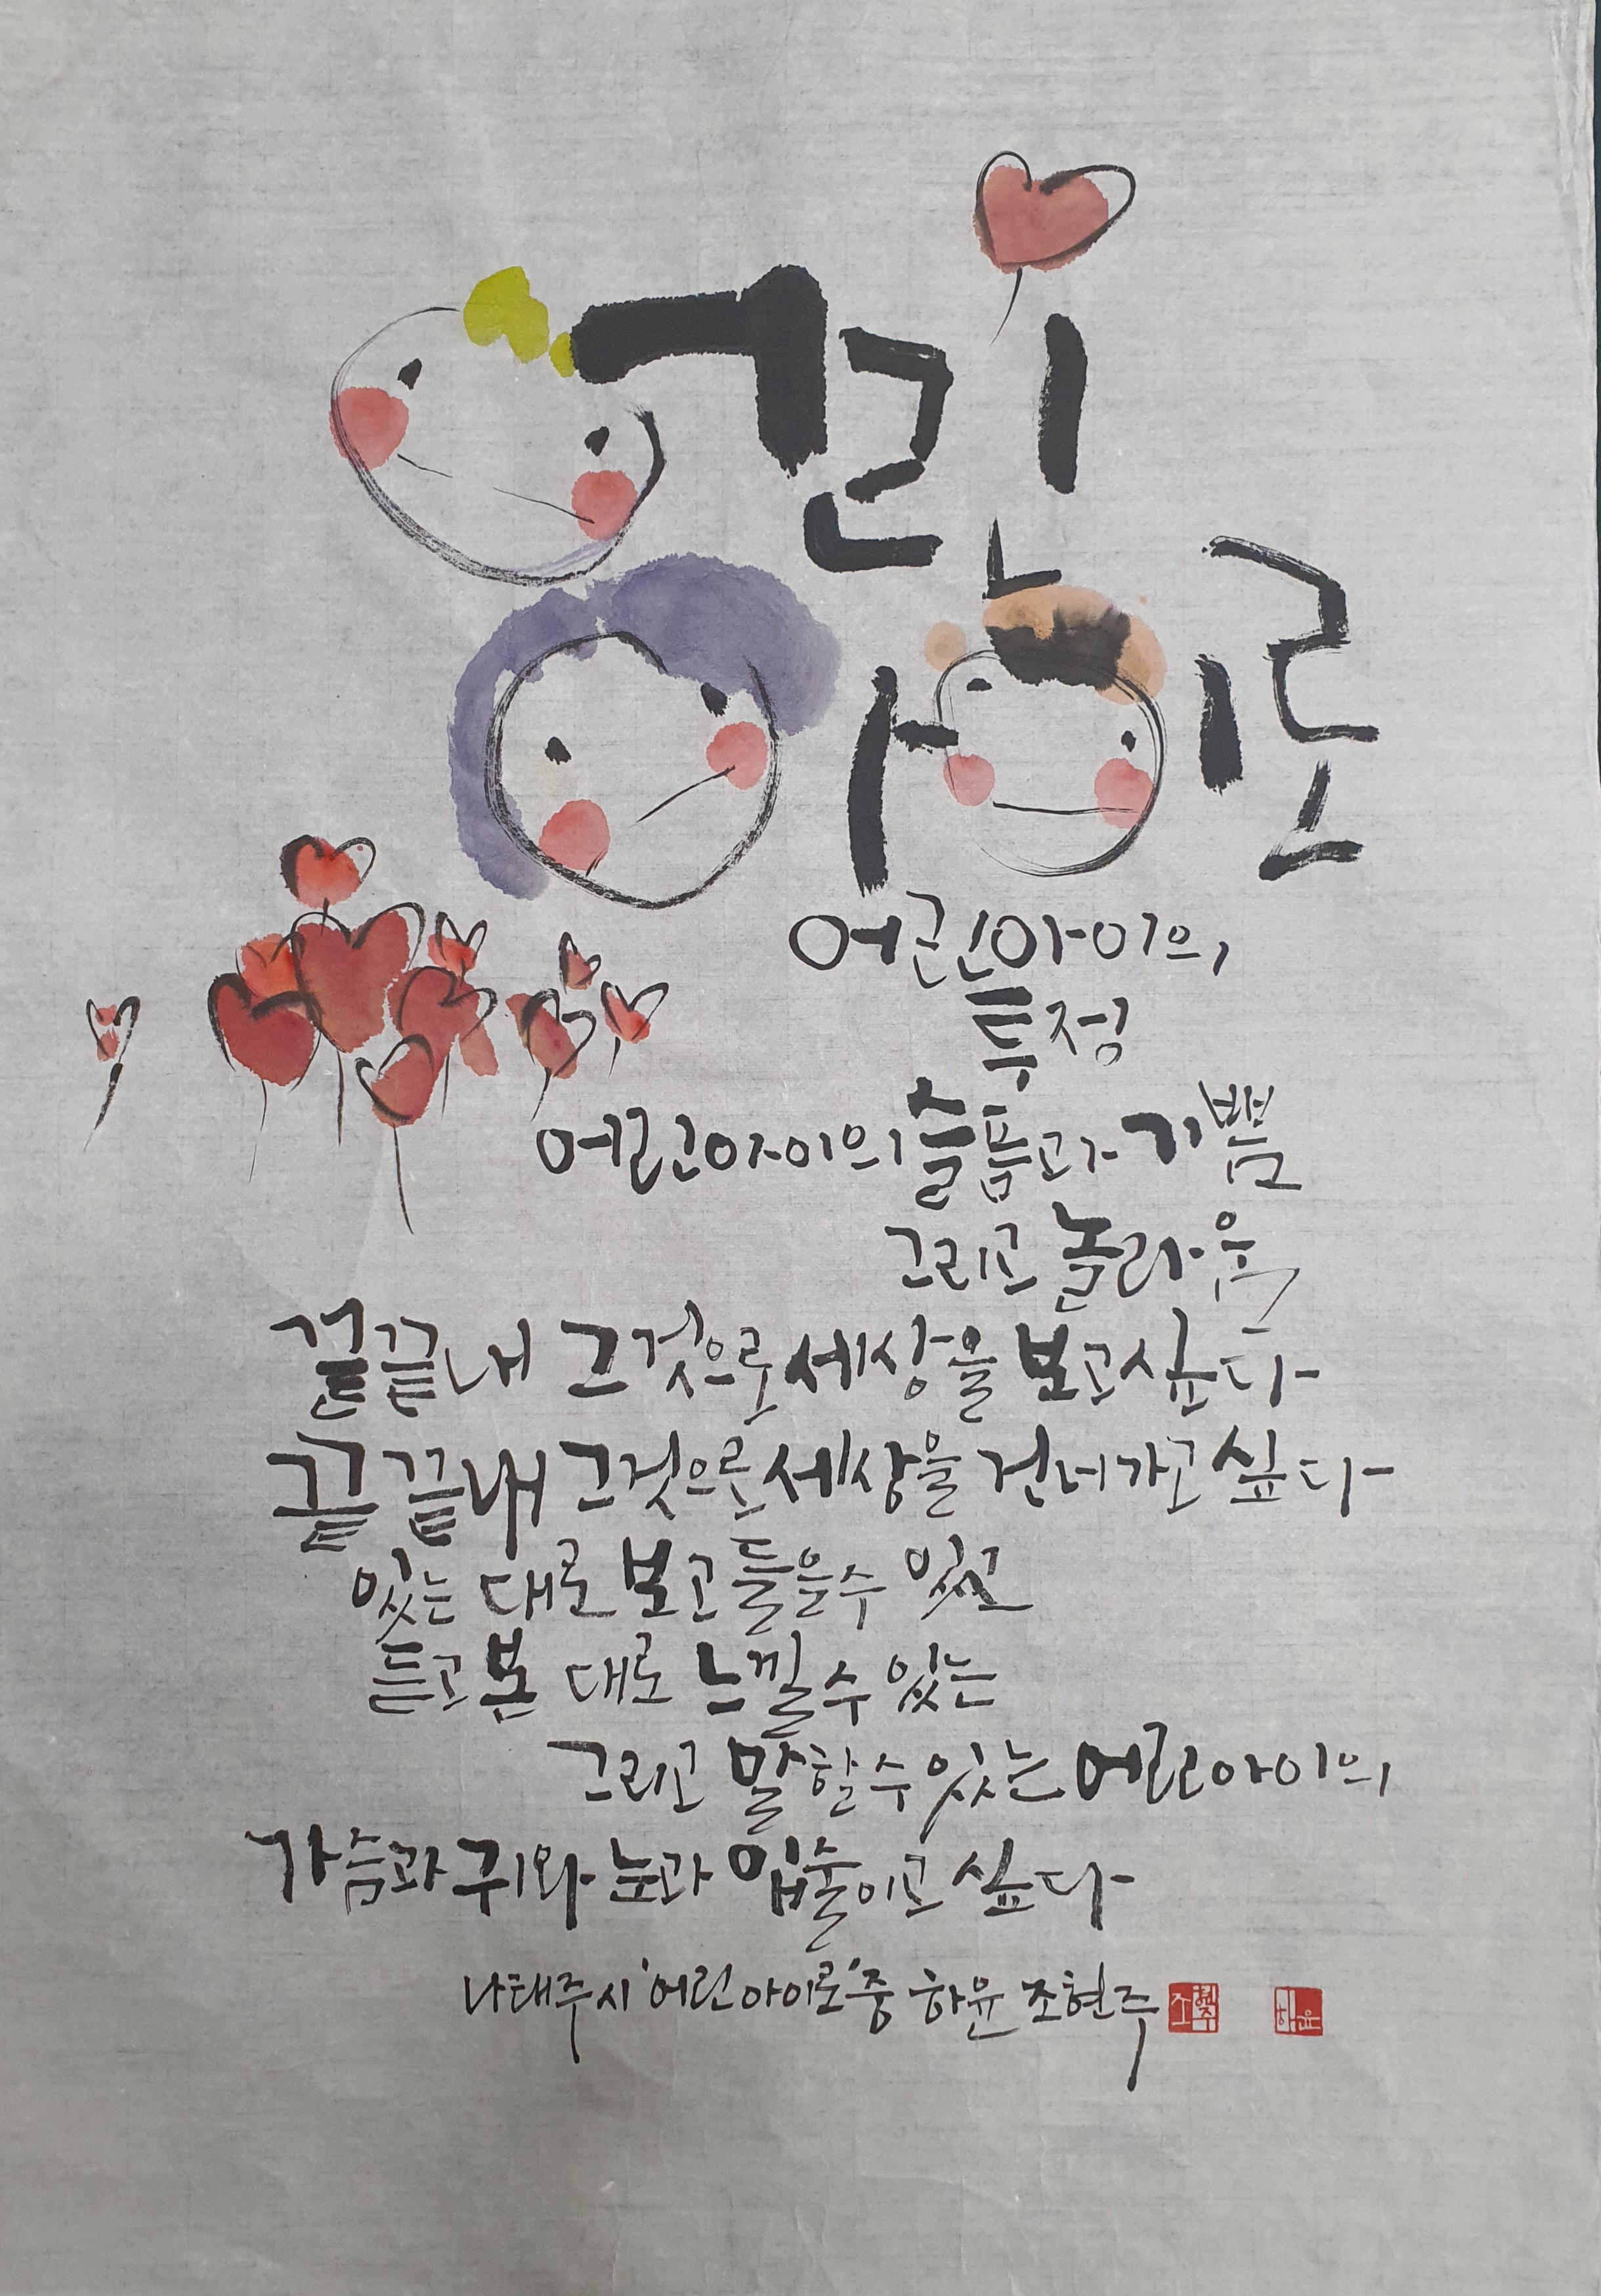 어린
아이로
어린아이의
투정
어린아이의 슬픔과 기쁨
그리고 놀라움
끝끝내 그것으로 세상을 보고 싶다
끝끝내 그것으로 세상을 건너가고 싶다
있는 대로 보고 들을 수 있고
듣고 본 대로 느낄 수 있는
그리고 말할 수 있는 어린아이의
가슴과 귀와 눈과 입술이고 싶다
나태주 시 '어린아이로' 중 하윤 조현주
조현주 하윤